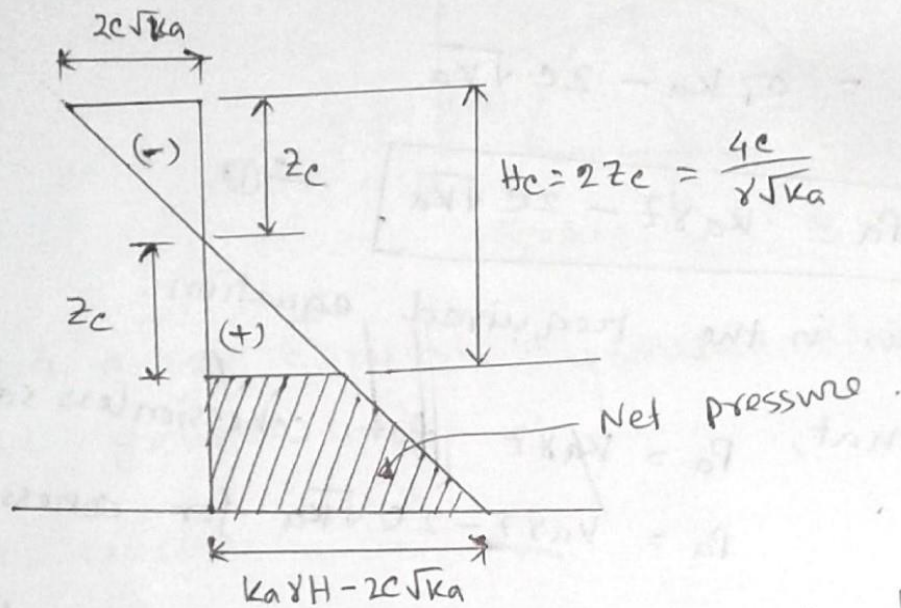 2c√ka
(-)
Zc
Hc = 2Zc = 4c / γ√ka
Zc
(+)
Net pressure.
kaγH - 2c√ka